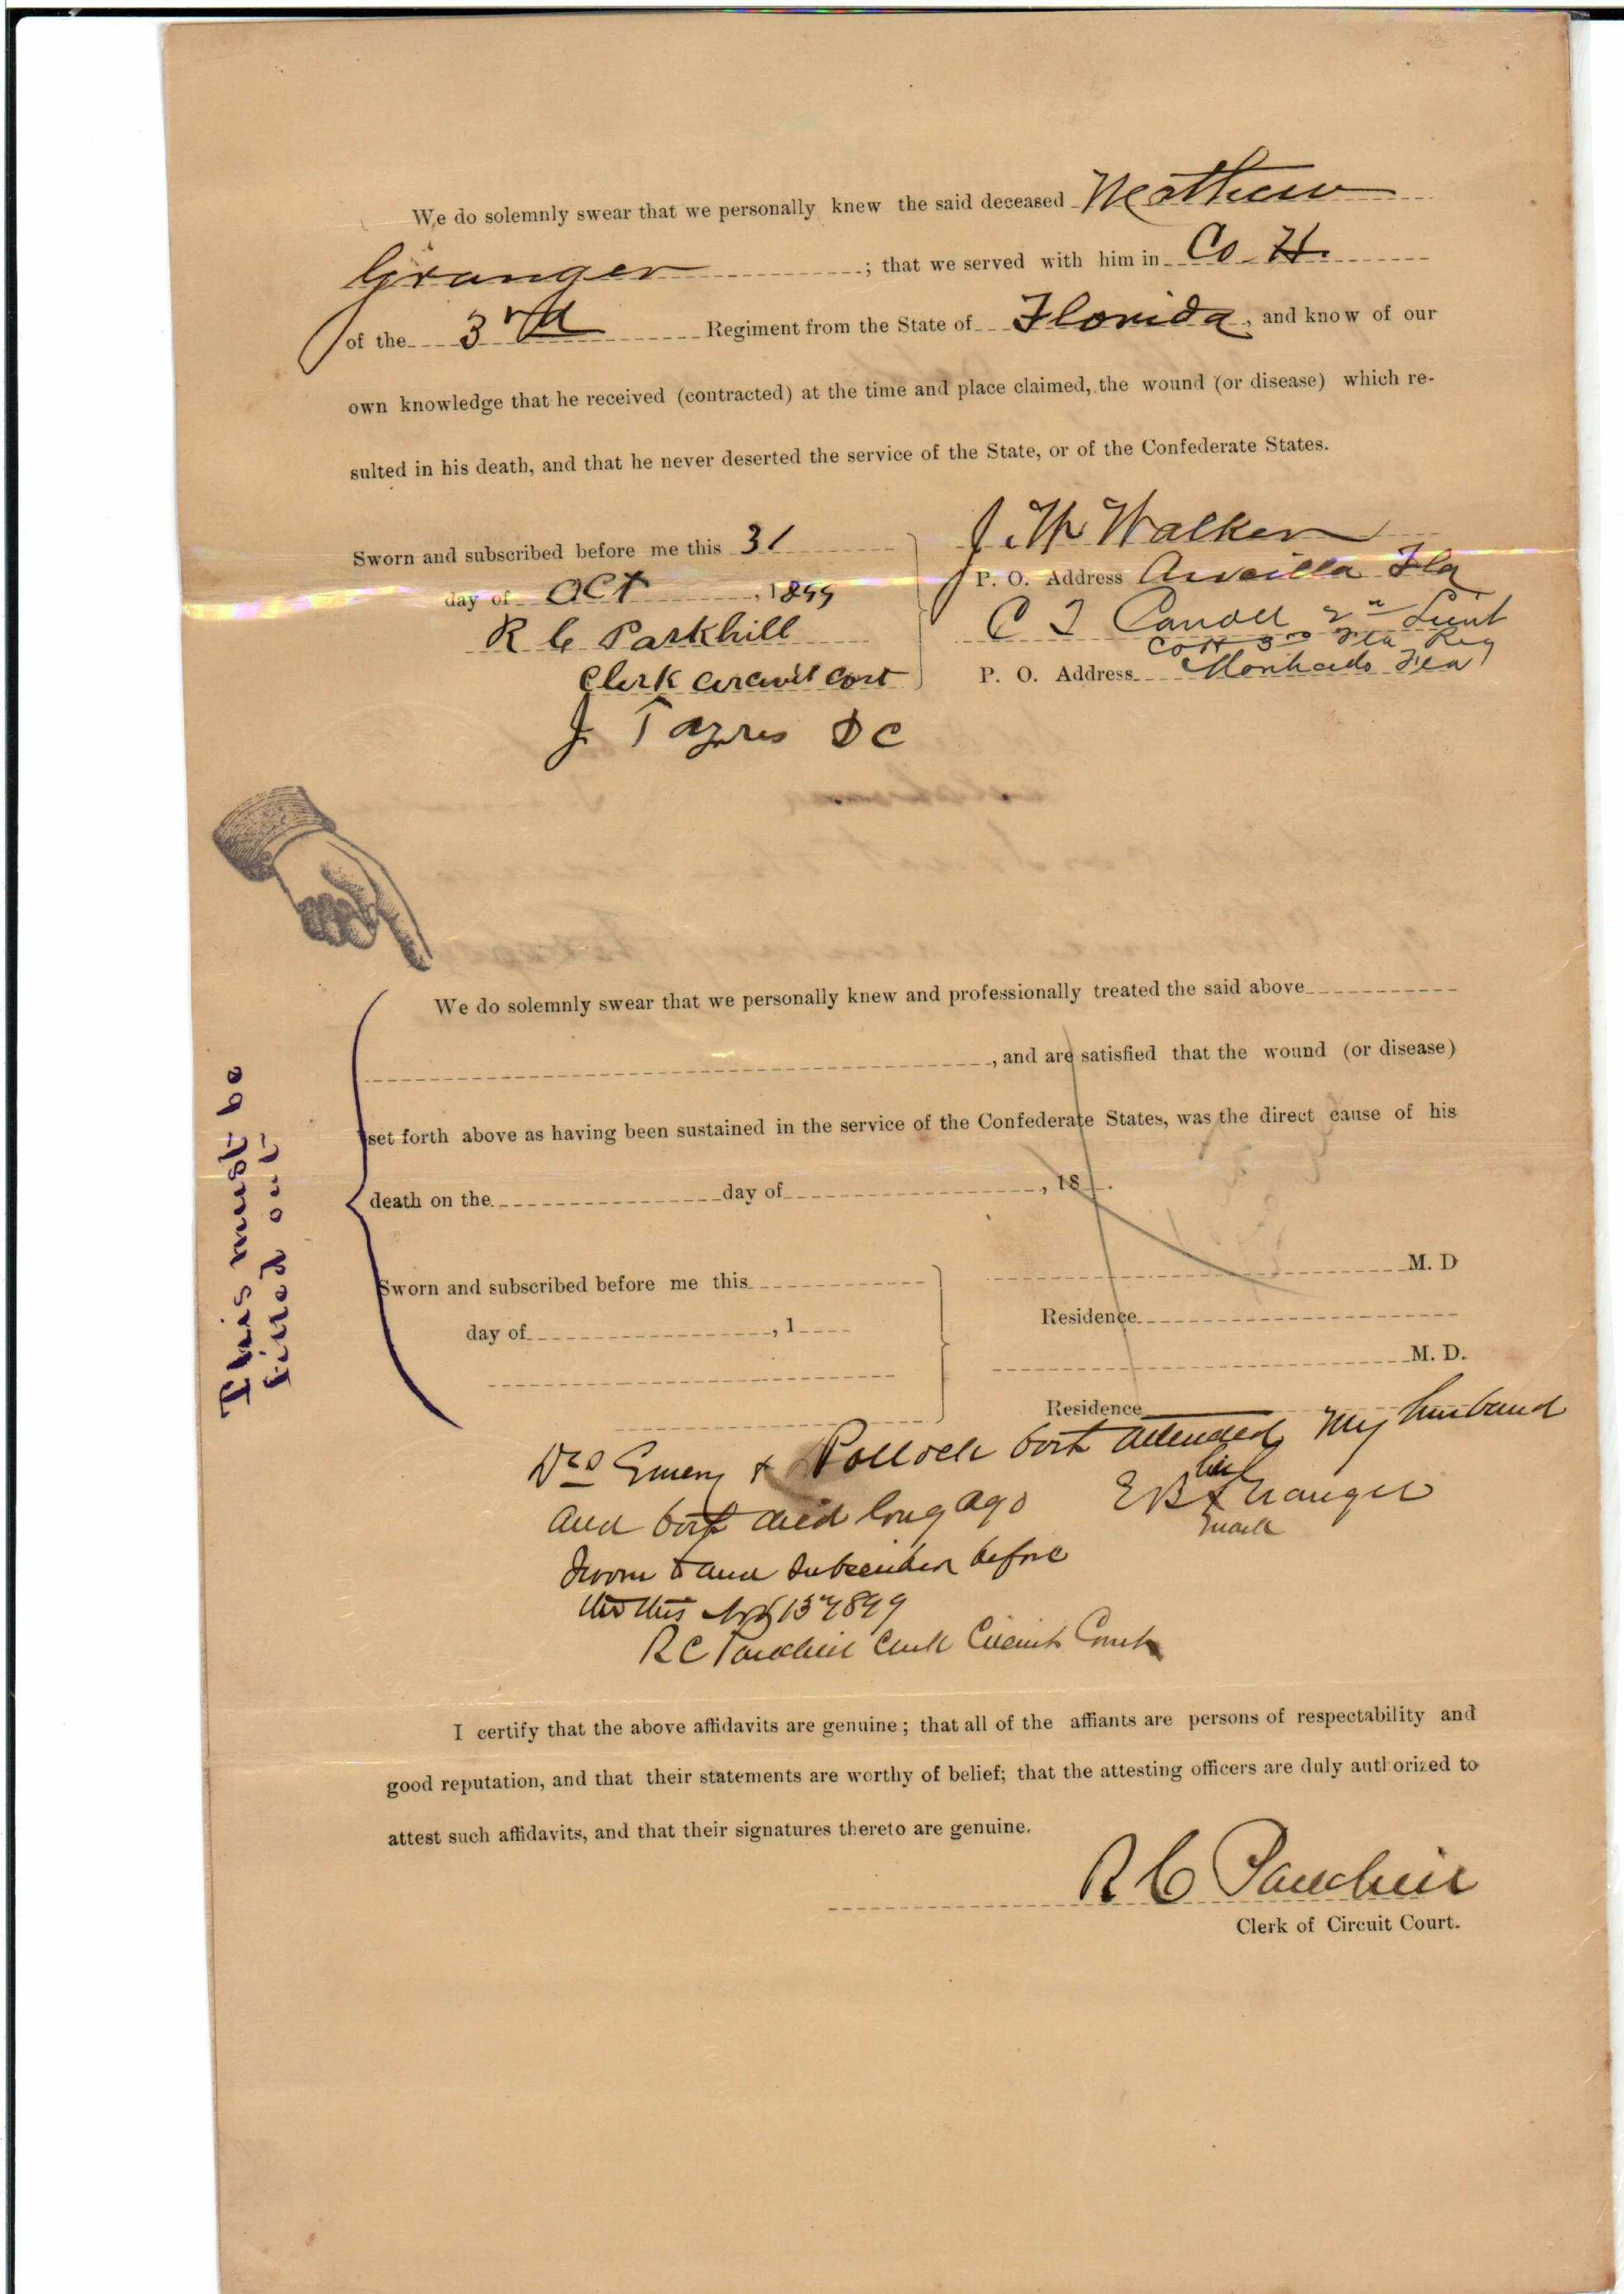 We do solemnly swear that we personally knew the said deceased Mathew
Granger ; that we served with him in Co H.
of the 3rd Regiment from the State of Florida, and know of our
own knowledge that he received (contracted) at the time and place claimed, the wound (or disease) which re-
sulted in his death, and that he never deserted the service of the State, or of the Confederate States.
Sworn and subscribed before me this 31
day of Oct, 1899
R C Parkhill
Clerk circuit cort
J T DC
J. W Walker
P. O. Address Aucilla Fla
C T 2n Lieut
Co H 3rd Fla Reg
P. O. Address Fla
This must be
fined out
We do solemnly swear that we personally knew and professionally treated the said above
, and are satisfied that the wound (or disease)
set forth above as having been sustained in the service of the Confederate States, was the direct cause of his
death on the day of , 18 .
Sworn and subscribed before me this
day of , 1
M. D
Residence
M. D.
Residence
Drs Emery & Pollock both attended my husband
and both died long ago
E B x Granger
her
mark
Sworn to and before
me this 1899
R C Parkhill Clerk Circuit Court
I certify that the above affidavits are genuine; that all of the affiants are persons of respectability and
good reputation, and that their statements are worthy of belief; that the attesting officers are duly authorized to
attest such affidavits, and that their signatures thereto are genuine.
R C Parkhill
Clerk of Circuit Court.